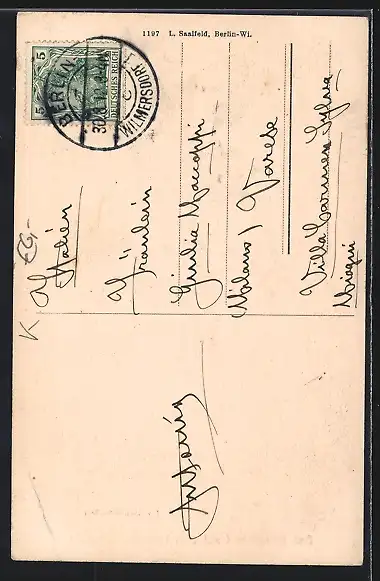 1197 L. Saalfeld, Berlin-Wi.
5 5
DEUTSCHES REICH
BERLIN
WILMERSDORF 1
Italien
Fräulein
Giulia Macoppi
Milano / Varese
Villa Carmen Sylva
K